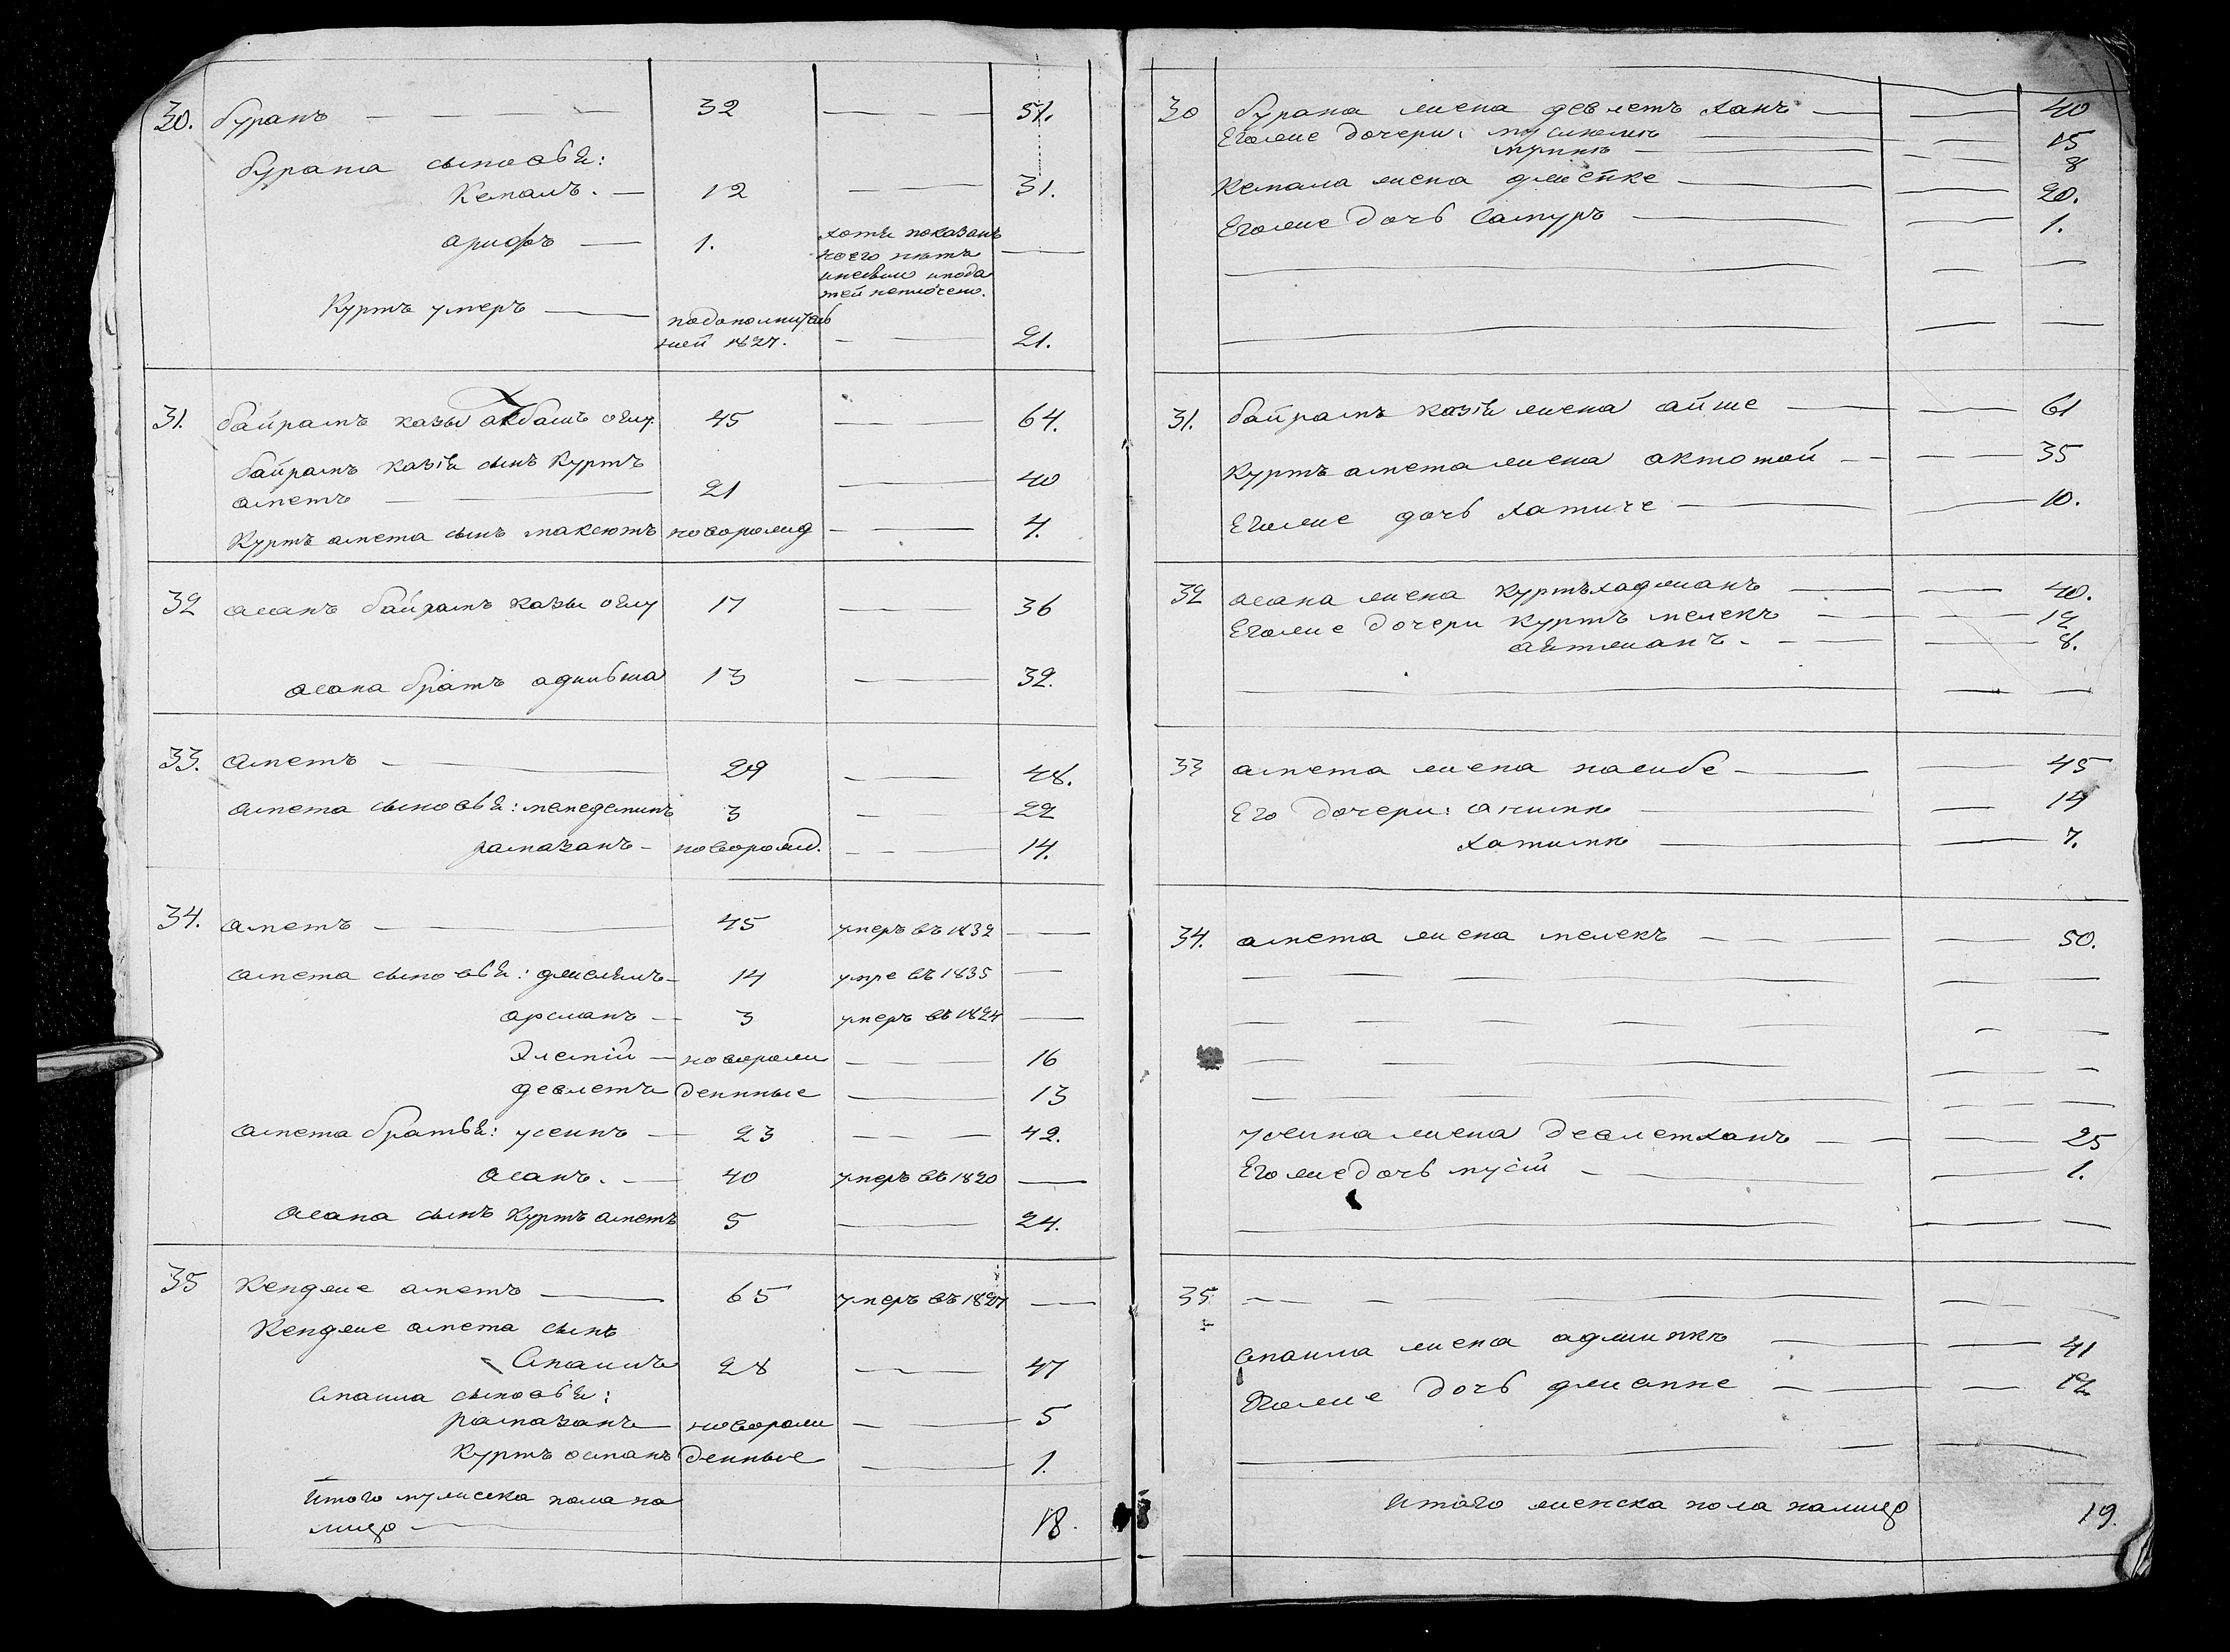 30. буранъ — — — 32 — — 51.
бурана сыновья:
Кемалъ. — 12 — — 31.
арифъ — 1. хотя показанъ
но его нетъ
и подо
тей неплочено. —
Куртъ умеръ — подополнитель
ной 1827. — — 21.
31. байрамъ казы акбашъ оглу. 45 — — 64.
байрамъ казiя сынъ Куртъ
аметъ — — 21 — 40
Куртъ амета сынъ максютъ новорожд — — 4.
32 асанъ байрамъ казы оглу 17 — — 36
асана братъ аджибша 13 — 32.
33. Аметъ — — 29 — — 48.
амета сыновья: мемедеминъ 3 — — 22
рамазанъ — новорожд. — — 14.
34. аметъ — — 45 умеръ въ 1832 —
амета сыновья: джелялъ — 14 умре въ 1835 —
арсланъ — 3 умеръ въ 1824 —
новорож — — 16
девлетъ денные — 13
амета братья: усеинъ — 23 — — — 42.
асанъ. — 40 умеръ въ 1820 —
асана сынъ Куртъ аметъ 5 — 24.
35 Кендже аметъ — 65 умеръ въ 1827 —
Кендже амета сынъ
Смаилъ 28 — — 47
Смаила сыновья:
рамазанъ новорож — — 5
Куртъ османъ денные — 1.
Итого мужеска пола на
лицо — 18.
30 бурана жена девлетъ ханъ — — 40
Егоже дочери: — — 15
— — — 8
Кемала жена — — 20.
Егоже дочь Салтуръ — — 1.
— — —
— — —
31. байрамъ казiя жена айше — — 61
Куртъ амета жена актотай — — — 35
Егоже дочь хатиче — — 10.
32 асана жена Куртъхаджианъ — — 40.
Егоже дочери Куртъ мелекъ — — 12
— — 8.
— — —
33 амета жена насибе — — 45
Его дочери: анимке — — 14
хатимке — — 7.
34. амета жена мелекъ — — — — 50.
— — — — — —
— — — — — — —
— — — — —
— — — — —
усеина жена Девлетханъ — — — 25
Егоже дочь — — 1.
— — —
35. — — — — — — —
Смаила жена — — 41
Егоже дочь — — — 12
— — — —
Итого женска пола налицо 19.